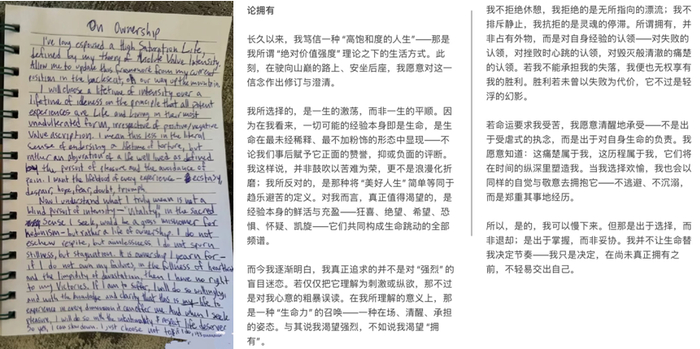 On Ownership
I've long espoused a High Saturation Life,
defined by my theory of Absolute Value Intensity.
Allow me to update this framework from my current
position in the backseat, on our way up the mountain.
I will choose a lifetime of intensity over a
lifetime of idleness on the principle that all potent
experiences are Life and Living in their most
unadulterated form, irrespective of positive/negative
Value ascription. I mean this less in the literal
sense of embracing a lifetime of torture, but
rather an abjuration of a life well lived as defined
by the pursuit of pleasure and the avoidance of
pain. I want the vividness of every experience - ecstasy,
despair, hope, fear, doubt, triumph.
Now I understand what I truly mean is not a
blind pursuit of intensity - "vitality," in the sacred
sense I seek, would be a gross misnomer for
hedonism - but rather a life of ownership. I do not
eschew respite, but aimlessness. I do not spurn
stillness, but stagnation. It is ownership I yearn for -
if I do not own my failures, in the fullness of
and the of devastation, then I have no right
to my Victories. If I am to suffer, I will do so willingly,
and with the knowledge and clarity that this is my life to
experience in every dimension it can offer me. And when I seek
pleasure, I will do so with the intentionality & life deserves.
So yes, I can slow down. I just choose not to
论拥有
长久以来，我笃信一种“高饱和度的人生”——那是
我所谓“绝对价值强度”理论之下的生活方式。此
刻，在驶向山巅的路上、安坐后座，我愿意对这一
信念作出修订与澄清。
我所选择的，是一生的激荡，而非一生的平顺。因
为在我看来，一切可能的经验本身即是生命，是生
命在最未经稀释、最不加粉饰的形态中显现——不
论我们事后赋予它正面的赞誉，抑或负面的评断。
我这样说，并非鼓吹以苦难为荣，更不是浪漫化折
磨；我所反对的，是那种将“美好人生”简单等同于
趋乐避苦的定义。对我而言，真正值得渴望的，是
经验本身的鲜活与充盈——狂喜、绝望、希望、恐
惧、怀疑、凯旋——它们共同构成生命跳动的全部
频谱。
而今我逐渐明白，我真正追求的并不是对“强烈”的
盲目迷恋。若仅仅把它理解为刺激或纵欲，那不过
是对我心意的粗暴误读。在我所理解的意义上，那
是一种“生命力”的召唤——一种在场、清醒、承担
的姿态。与其说我渴望强烈，不如说我渴望“拥
有”。
我不拒绝休憩，我拒绝的是无所指向的漂流；我不
排斥静止，我抗拒的是灵魂的停滞。所谓拥有，并
非占有外物，而是对自身经验的认领——对失败的
认领，对挫败时心跳的认领，对毁灭般清澈的痛楚
的认领。若我不能承担我的失落，我便也无权享有
我的胜利。胜利若未曾以失败为代价，它不过是轻
浮的幻影。
若命运要求我受苦，我愿意清醒地承受——不是出
于受虐式的执念，而是出于对自身生命的负责。我
愿意知道：这痛楚属于我，这历程属于我，它们将
在时间的纵深里塑造我。当我选择欢愉，我也会以
同样的自觉与敬意去拥抱它——不逃避、不沉溺，
而是郑重其事地经历。
所以，是的，我可以慢下来。但那是出于选择，而
非退却；是出于掌握，而非妥协。我并不让生命替
我决定节奏——我只是决定，在尚未真正拥有之
前，不轻易交出自己。